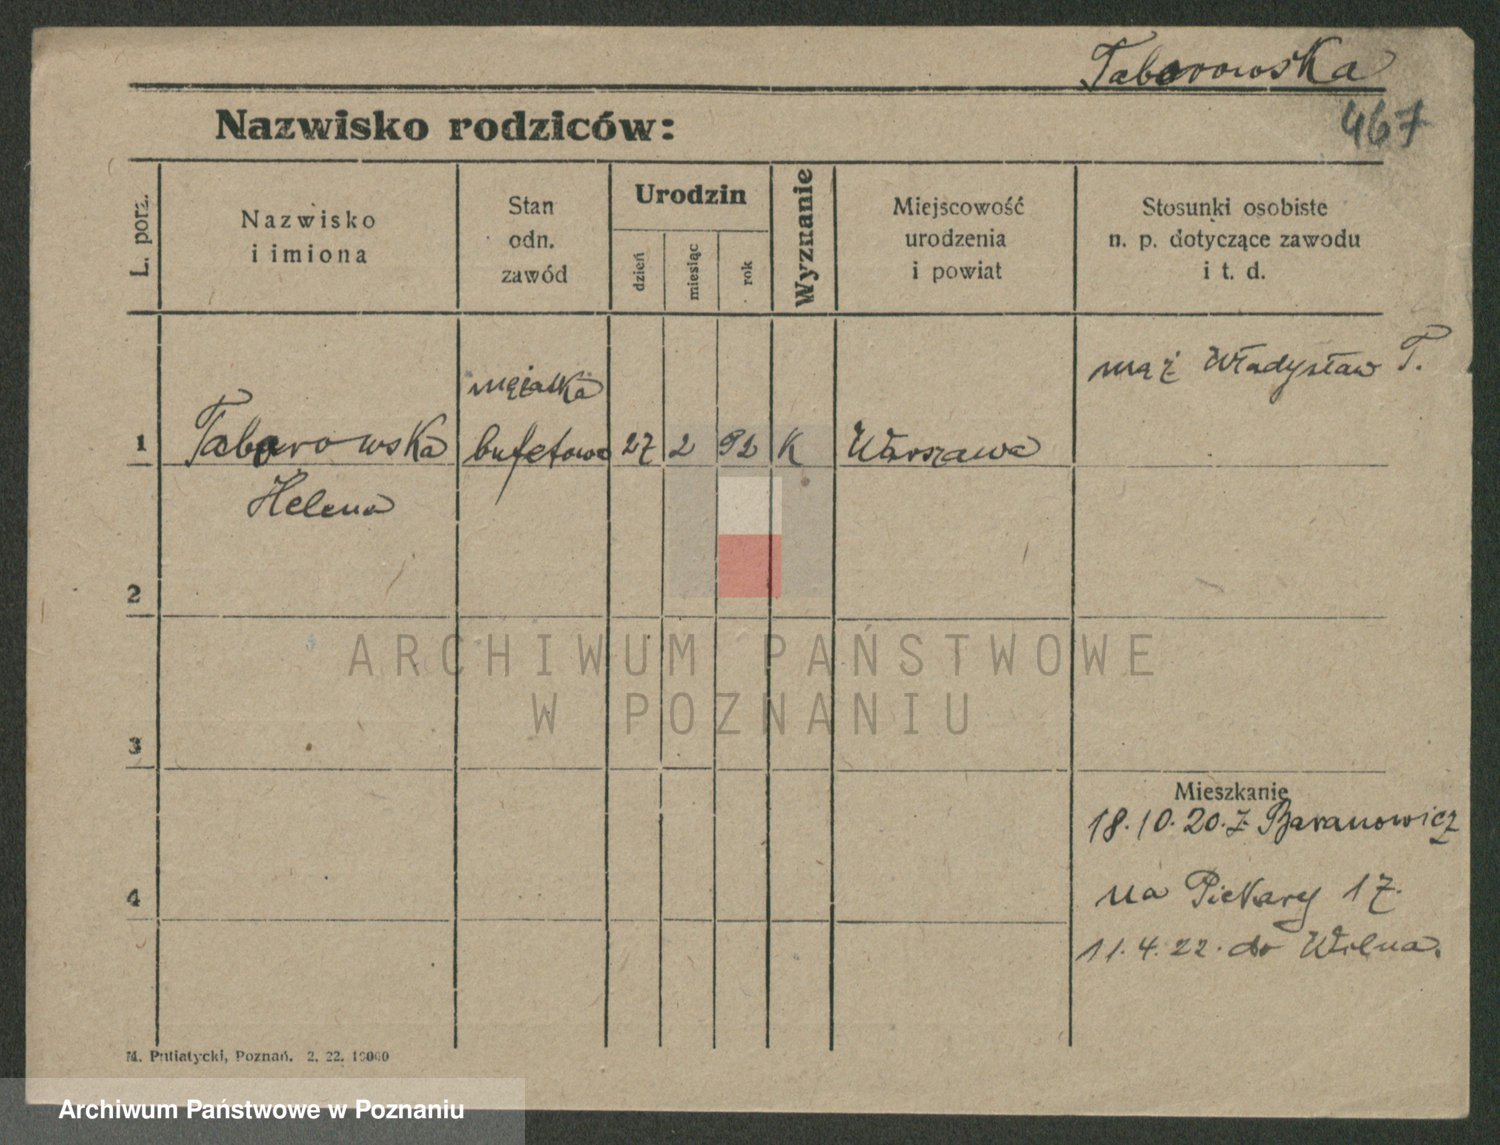 Taborowska
467
Nazwisko rodziców:
L. porz.
Nazwisko
i imiona
Stan
odn.
zawód
Urodzin
dzień
miesiąc
rok
Wyznanie
Miejscowość
urodzenia
i powiat
Stosunki osobiste
n. p. dotyczące zawodu
i t. d.
mąż Władysław T.
mężatka
1 Taborowska bufetowa 27 2 92 K Warszawa
Helena
2
ARCHIWUM PAŃSTWOWE
W POZNANIU
3
Mieszkanie
18.10.20. z Baranowicz
4
na Piekary 17.
11.4.22. do Wilna.
M. Putiatycki, Poznań. 2. 22. 10000
Archiwum Państwowe w Poznaniu